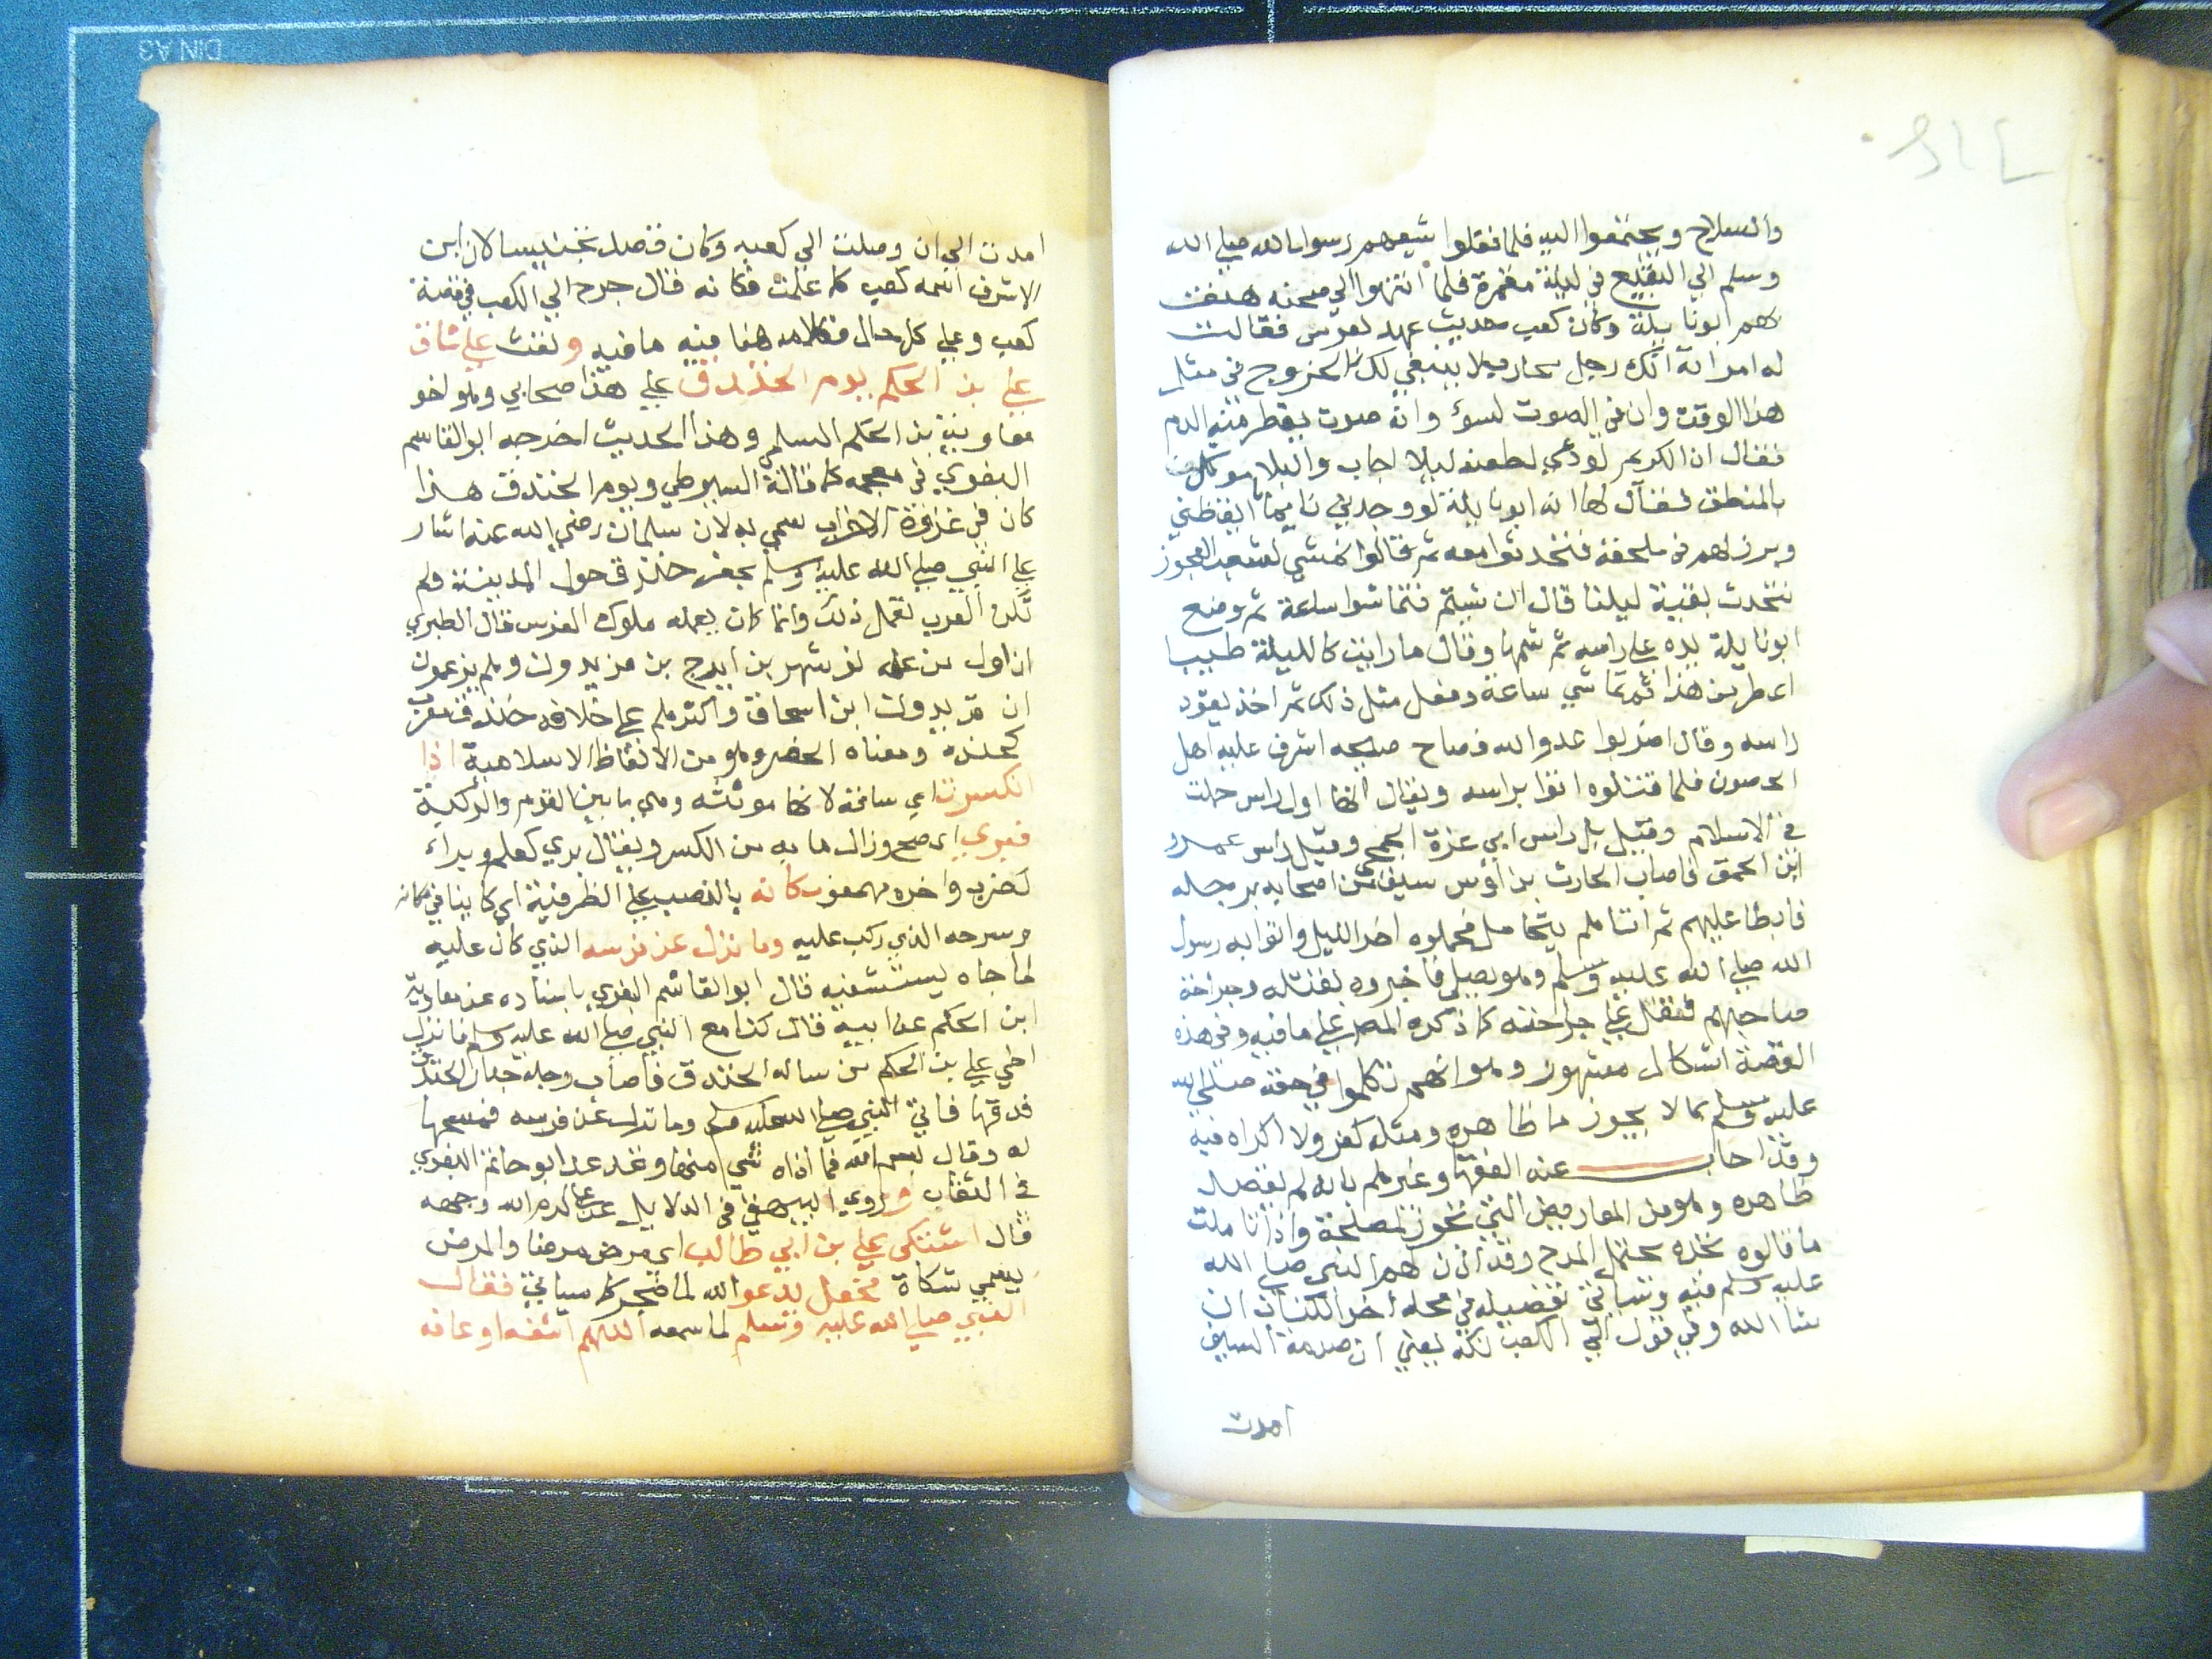 والسلاح ويجتمعوا اليه فلما فعلوا شيعهم رسول الله صلي الله
وسلم الي البقيع في ليلة مقمرة فلما انتهوا الي صحنه هتف
بهم ابونا يلة وكان كعب حديث عهد بعرس فقالت
له امراته انك رجل محارب لا ينبغي لك الخروج في مثل
هذا الوقت وان في الصوت لسوء وانه صوت يقطر منه الدم
فقال ان الكريم لو دعي لطعنه ليلا اجاب والبلا موكل
بالمنطق فقال لها انه ابونا يلة لو وجدني نايما ايقظني
وبرز لهم في ملحفة فتحدثوا معه ثم قالوا نمشي لشعب العجوز
نتحدث بقية ليلتنا قال ان شيتم فتماشوا ساعة ثم وضع
ابونا يلة يده علي راسه ثم شمها وقال ما رايت كالليلة طيبا
اعطر من هذا ثم تماشي ساعة وفعل مثل ذلك ثم اخذ يقود
راسه وقال اضربوا عدو الله فصاح صيحه اشرف عليه اهل
الحصون فلما قتلوه اتوا براسه ويقال انها اول راس حملت
في الاسلام وقيل بل راس ابي عزة الجمحي وقيل راس عمرو
ابن الحمق فاصاب الحارث بن اوس سيف من اصحابه برجله
فابطا عليهم ثم اتتا فلم يتحامل فحملوه اخر الليل واتوا به رسول
الله صلي الله عليه وسلم وهو يصلي فاخبروه بقتله وجراحة
صاحبهم فتفل علي جراحته كما ذكره المص علي ما فيه وفي هذه
القصة اشكال مشهور وهو انهم تكلموا في حقه صلي الله
عليه وسلم بما لا يجوز ما ظاهره ومثله كفر ولا اكراه فيه
وقد اجاب عنه الفقها وغيرهم بانه لم يقصد
ظاهره وهو من المعاريض التي تجوز لمصلحة واذا تاملت
ما قالوه تجده يحتمل المدح وقد اذن لهم النبي صلي الله
عليه وسلم فيه وسياتي تفصيله في محله اخر الكتاب ان
شا الله وفي قول الكعب نكتة يعني ان ضربة السيف
امدت
امدت الي ان وصلت الي كعبه وكان قصد تجنيسا لان ابن
الاشرف اسمه كعب كما علمت فكانه قال جرح الي الكعب في قصة
كعب وعلي كل حال فكلامه هنا فيه ما فيه ونفث علي شاق
علي بن الحكم يوم الخندق علي هذا صحابي وهو اخو
معاوية بن الحكم السلمي وهذا الحديث اخرجه ابو القاسم
البغوي في معجمه كما قاله السيوطي ويوم الخندق هذا
كان في غزوة الاحزاب سمي به لان سلمان رضي الله عنه اشار
علي النبي صلي الله عليه وسلم بحفر خندق حول المدينة ولم
تكن العرب تعمل ذلك وانما كان يعمله ملوك الفرس قال الطبري
ان اول من عمله نوشهر بن ايرج بن فريدون وهم يزعمون
ان فريدون ابن اسحاق واكثرهم علي خلافه خندق معرب
كنده ومعناه الحفر وهو من الالفاظ الاسلامية اذا
انكسرت اي ساقه لانها مونثه وهي ما بين القدم والركبة
فبري اي صح وزال ما به من الكسر ويقال بري كعلم وبراء
كضرب واخره مهموز مكانه بالنصب علي الظرفية اي كاينا في مكانه
وسرحه الذي ركب عليه وما نزل عن فرسه الذي كان عليه
لما جاه يستشفيه قال ابو القاسم البغوي باسناده عن معاوية
ابن الحكم عن ابيه قال كنا مع النبي صلي الله عليه وسلم فانزل
اخي علي بن الحكم من ساله الخندق فاصاب رجله جدار الخندق
فدقها فاتي النبي صلي الله عليه وسلم وما نزل عن فرسه فمسحها
له وقال بسم الله فما اذاه شي منها ونحوه عن ابو حاتم البغوي
في الثقات وروي البيهقي في الدلايل عن علي كرم الله وجهه
قال اشتكي علي بن ابي طالب اي مرض مرضا والمرض
يسمي شكاة فجعل يدعوا الله لما ضجر كما سياتي فقال
النبي صلي الله عليه وسلم لما سمعه اللهم اشفه او عافه